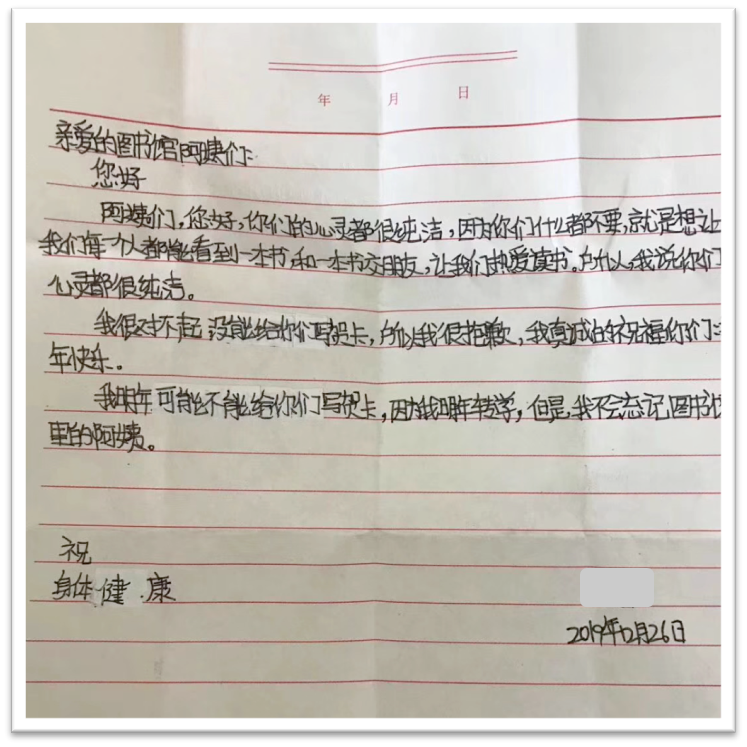 年 月 日
亲爱的图书馆阿姨们:
您好
阿姨们,您好,你们的心灵都很纯洁,因为你们什么都不要,就是想让
我们每一个人都能看到一本书,和一本书交朋友,让我们热爱读书。所以,我说你们
心灵都很纯洁。
我很对不起没能给你们写贺卡,所以我很抱歉,我真诚的祝福你们
年快乐。
我明年可能不能给你们写贺卡,因为我明年转学,但是,我不会忘记图书
里的阿姨。
祝
身体健.康
2019年12月26日